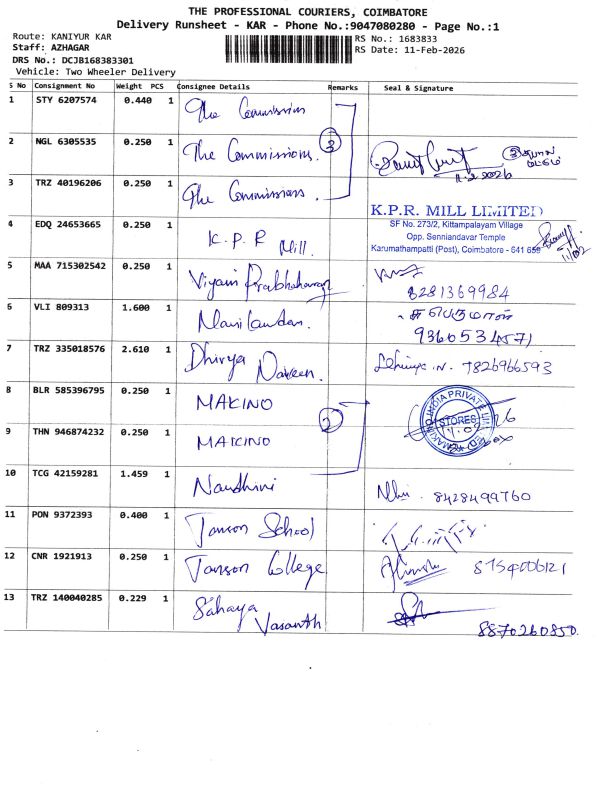 THE PROFESSIONAL COURIERS, COIMBATORE
Delivery Runsheet - KAR - Phone No.:9047080280 - Page No.:1
Route: KANIYUR KAR
RS No.: 1683833
Staff: AZHAGAR
RS Date: 11-Feb-2026
DRS No.: DCJB168383301
Vehicle: Two Wheeler Delivery
S No Consignment No Weight PCS Consignee Details Remarks Seal & Signature
1 STY 6207574 0.440 1 The Commissioners
2 NGL 6305535 0.250 1 The Commissioners. 3
11.2.2026
3 TRZ 40196206 0.250 1 The Commissioners.
K.P.R. MILL LIMITED
SF No. 273/2, Kittampalayam Village
Opp. Senniandavar Temple
Karumathampatti (Post), Coimbatore - 641 659
4 EDQ 24653665 0.250 1 K.P.R Mill.
11/02
5 MAA 715302542 0.250 1 Prabhaharan
8281369984
6 VLI 809313 1.600 1 Manikandan.
பெருமாள்
9360534571
7 TRZ 335018576 2.610 1 Dhivya Naveen. 7826966593
8 BLR 585396795 0.250 1 MAKINO
2
INDIA PRIVATE LIMITED
STORES
9 THN 946874232 0.250 1 MAKINO
10 TCG 42159281 1.459 1 Nandhini 8428499760
11 PON 9372393 0.400 1 Janson School
12 CNR 1921913 0.250 1 Janson College 8754006121
13 TRZ 140040285 0.229 1 Sahaya Vasanth
8870260850.